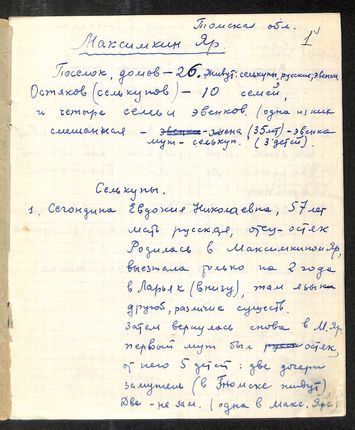 Томская обл.
1
Максимкин Яр.
Поселок, домов - 26. Живут: селькупы, русские, эвенки
Остяков (селькупов) - 10 семей,
и четыре семьи эвенков. (одна из них
смешанная - эвенка жена (35 лет) - эвенка
муж - селькуп. (3 детей).
Селькупы.
1. Сегондина Евдокия Николаевна, 57 лет
мать русская, отец - остяк
Родилась в Максимкином Яр,
выезжала только на 2 года
в Ларьяк (внизу), там язык
другой, различие существ.
Затем вернулась снова в М.Яр.
первый муж был русск остяк,
от него 5 детей: две дочери
замужем (в Томске живут),
Две - не зам. (одна в Макс. Яре)